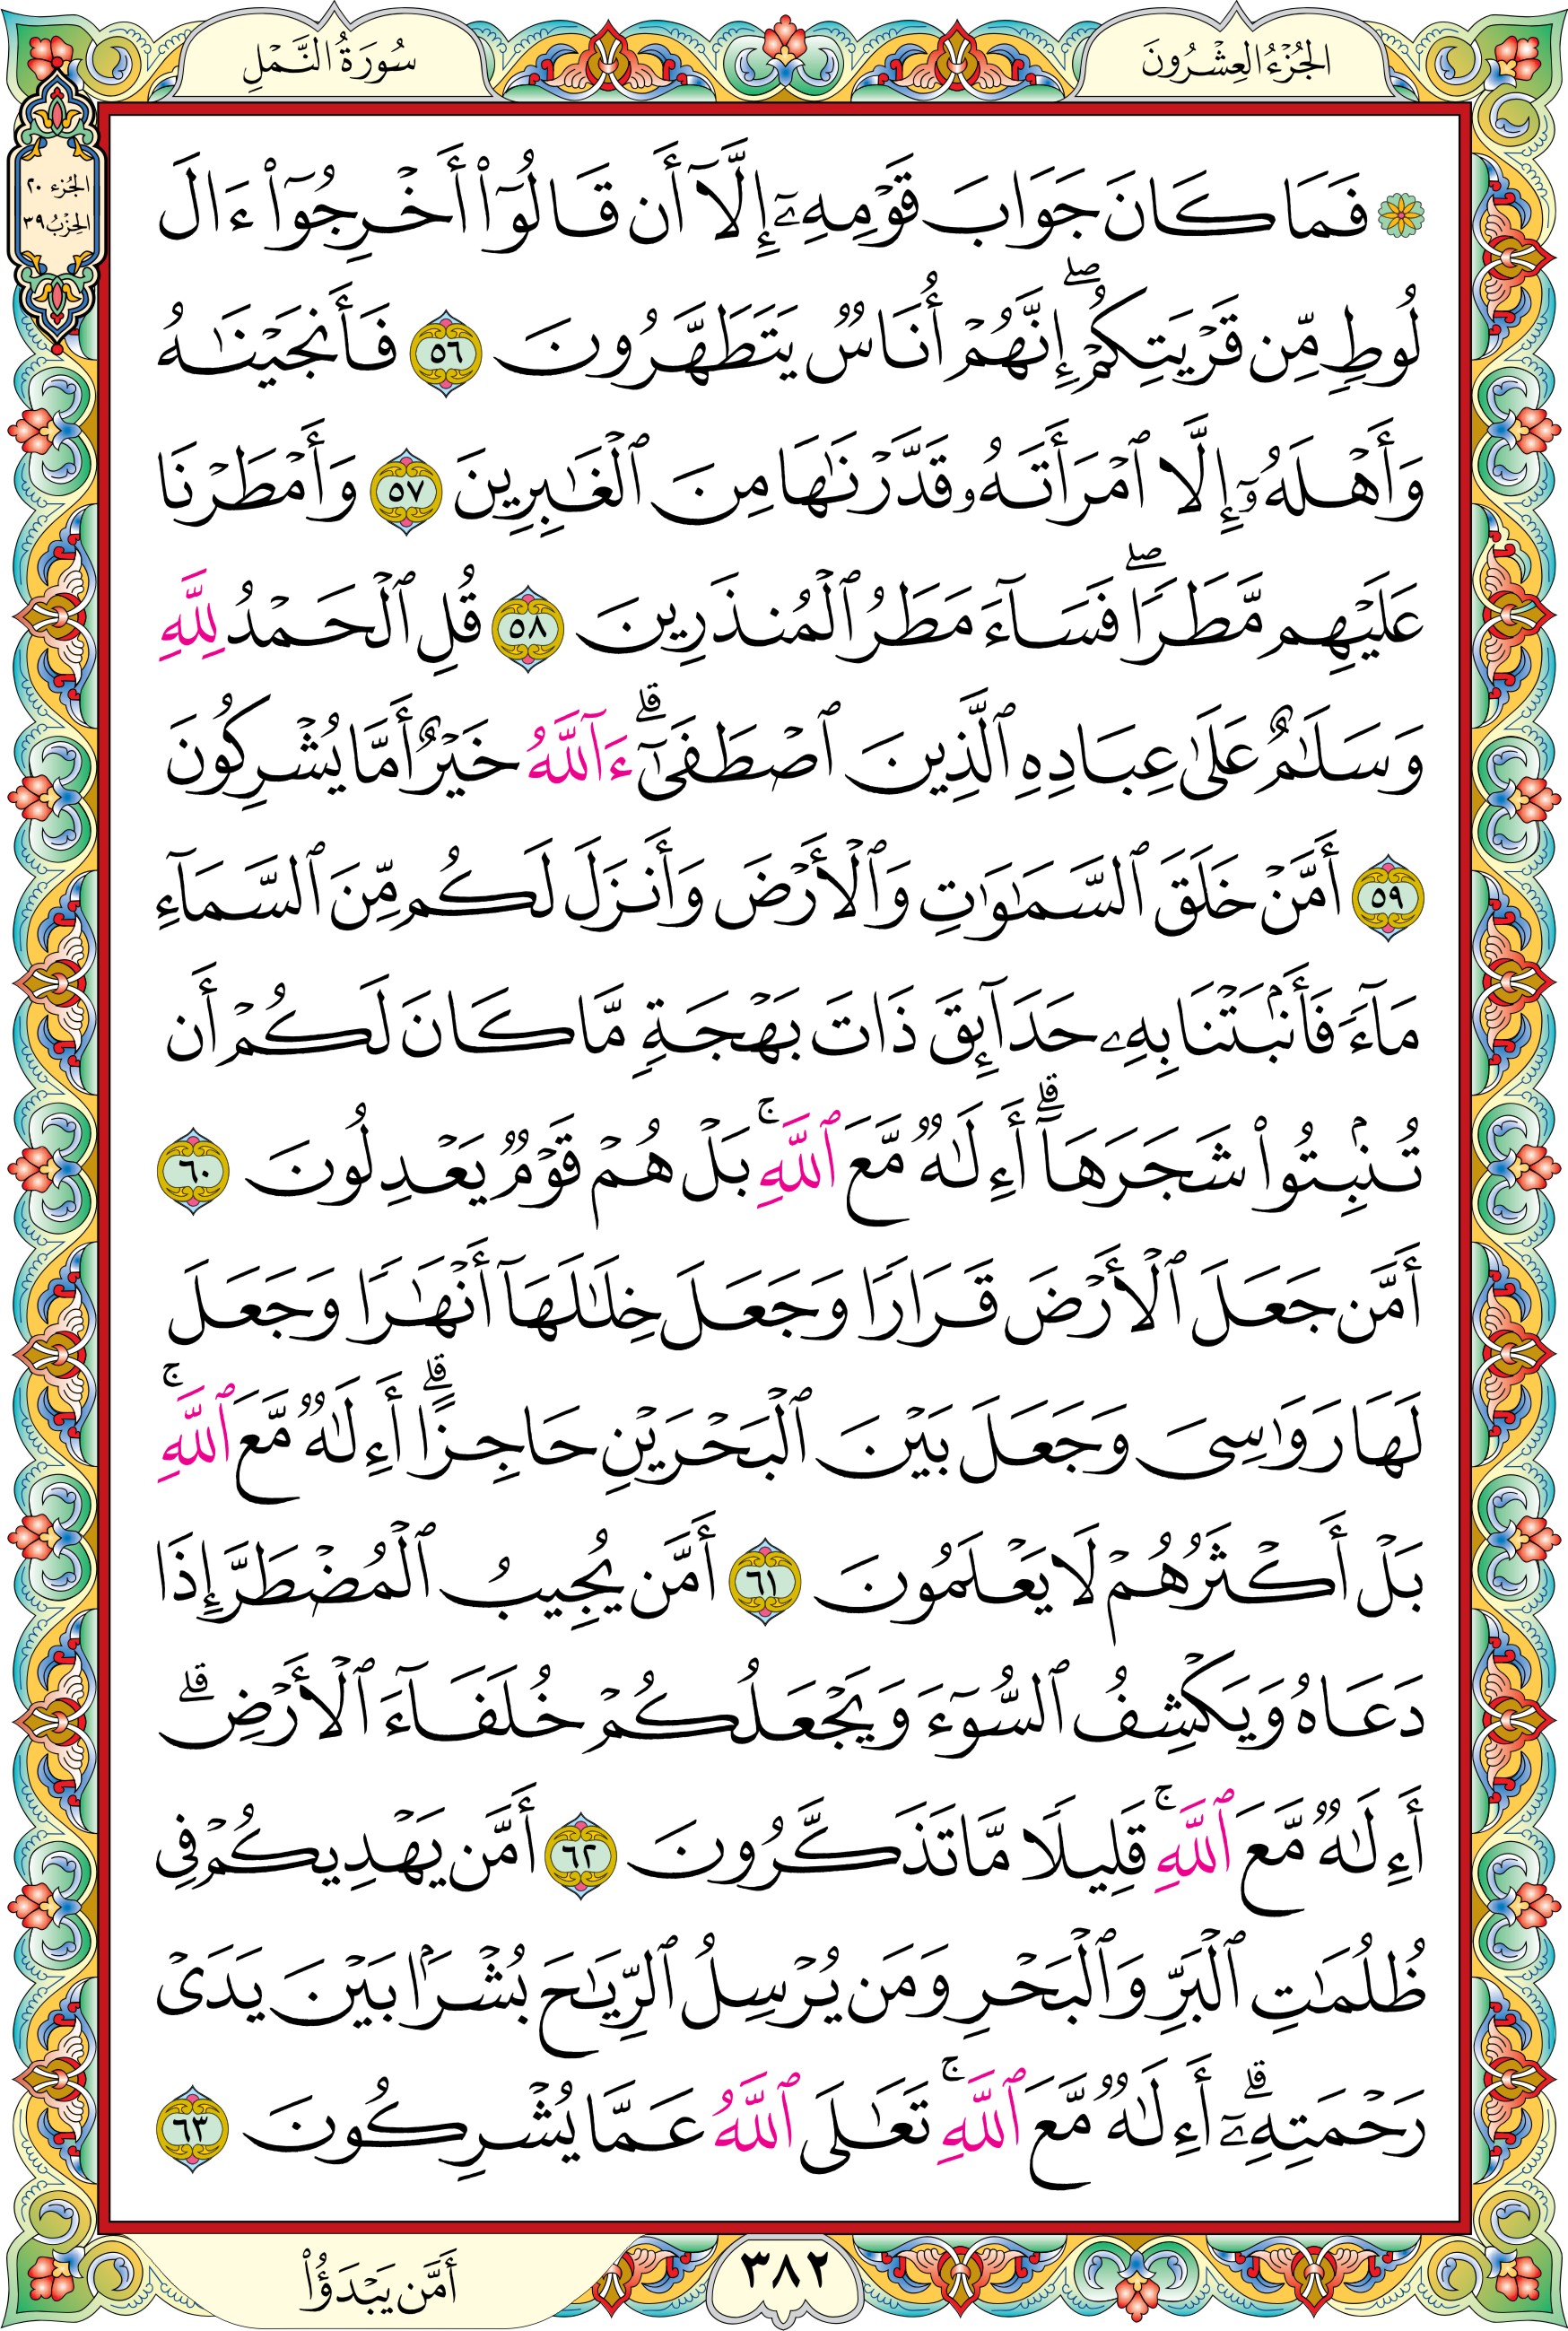 الجُزْءُ العِشْرُونَ
سُورَةُ النَّمْلِ
الجزء ٢٠
الحِزْبُ ٣٩
۞ فَمَا كَانَ جَوَابَ قَوْمِهِۦٓ إِلَّآ أَن قَالُوٓا۟ أَخْرِجُوٓا۟ ءَالَ
لُوطٍ مِّن قَرْيَتِكُمْ ۖ إِنَّهُمْ أُنَاسٌ يَتَطَهَّرُونَ ٥٦ فَأَنجَيْنَٰهُ
وَأَهْلَهُۥٓ إِلَّا ٱمْرَأَتَهُۥ قَدَّرْنَٰهَا مِنَ ٱلْغَٰبِرِينَ ٥٧ وَأَمْطَرْنَا
عَلَيْهِم مَّطَرًا ۖ فَسَآءَ مَطَرُ ٱلْمُنذَرِينَ ٥٨ قُلِ ٱلْحَمْدُ لِلَّهِ
وَسَلَٰمٌ عَلَىٰ عِبَادِهِ ٱلَّذِينَ ٱصْطَفَىٰٓ ۗ ءَآللَّهُ خَيْرٌ أَمَّا يُشْرِكُونَ
٥٩ أَمَّنْ خَلَقَ ٱلسَّمَٰوَٰتِ وَٱلْأَرْضَ وَأَنزَلَ لَكُم مِّنَ ٱلسَّمَآءِ
مَآءً فَأَنۢبَتْنَا بِهِۦ حَدَآئِقَ ذَاتَ بَهْجَةٍ مَّا كَانَ لَكُمْ أَن
تُنۢبِتُوا۟ شَجَرَهَآ ۗ أَءِلَٰهٌ مَّعَ ٱللَّهِ ۚ بَلْ هُمْ قَوْمٌ يَعْدِلُونَ ٦٠
أَمَّن جَعَلَ ٱلْأَرْضَ قَرَارًا وَجَعَلَ خِلَٰلَهَآ أَنْهَٰرًا وَجَعَلَ
لَهَا رَوَٰسِىَ وَجَعَلَ بَيْنَ ٱلْبَحْرَيْنِ حَاجِزًا ۗ أَءِلَٰهٌ مَّعَ ٱللَّهِ ۚ
بَلْ أَكْثَرُهُمْ لَا يَعْلَمُونَ ٦١ أَمَّن يُجِيبُ ٱلْمُضْطَرَّ إِذَا
دَعَاهُ وَيَكْشِفُ ٱلسُّوٓءَ وَيَجْعَلُكُمْ خُلَفَآءَ ٱلْأَرْضِ ۗ
أَءِلَٰهٌ مَّعَ ٱللَّهِ ۚ قَلِيلًا مَّا تَذَكَّرُونَ ٦٢ أَمَّن يَهْدِيكُمْ فِى
ظُلُمَٰتِ ٱلْبَرِّ وَٱلْبَحْرِ وَمَن يُرْسِلُ ٱلرِّيَٰحَ بُشْرًۢا بَيْنَ يَدَىْ
رَحْمَتِهِۦٓ ۗ أَءِلَٰهٌ مَّعَ ٱللَّهِ ۚ تَعَٰلَى ٱللَّهُ عَمَّا يُشْرِكُونَ ٦٣
٣٨٢
أَمَّن يَبْدَؤُا۟